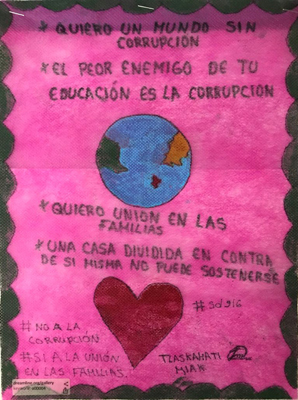 * QUIERO UN MUNDO SIN
CORRUPCION
* EL PEOR ENEMIGO DE TU
EDUCACIÓN ES LA CORRUPCION
* QUIERO UNION EN LAS
FAMILIAS
* UNA CASA DIVIDIDA EN CONTRA
DE SI MISMA NO PUEDE SOSTENERSE
# NO A LA
CORRUPCIÓN
# SI A LA UNIÓN
EN LAS FAMILIAS.